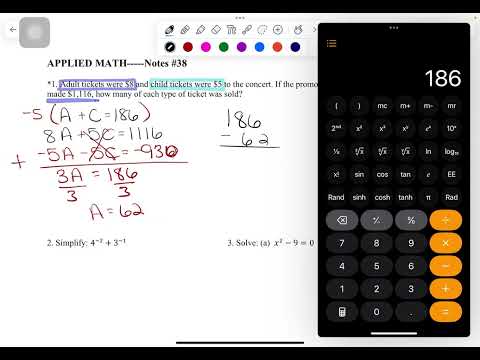 APPLIED MATH-----Notes #38
*1. Adult tickets were $8 and child tickets were $5 to the concert. If the promo
made $1,116, how many of each type of ticket was sold?
-5 (A + C = 186)
8A + 5C = 1116
+ -5A - 5C = -930
3A = 186
3 3
A = 62
186
- 62
2. Simplify: 4⁻² + 3⁻¹
3. Solve: (a) x² − 9 = 0
186
( ) mc m+ m- mr
2ⁿᵈ x² x³ xʸ eˣ 10ˣ
¹/x ²√x ³√x ʸ√x ln log₁₀
x! sin cos tan e EE
Rand sinh cosh tanh π Rad
⁺/₋ % ÷
7 8 9 ×
4 5 6 −
1 2 3 +
0 . =